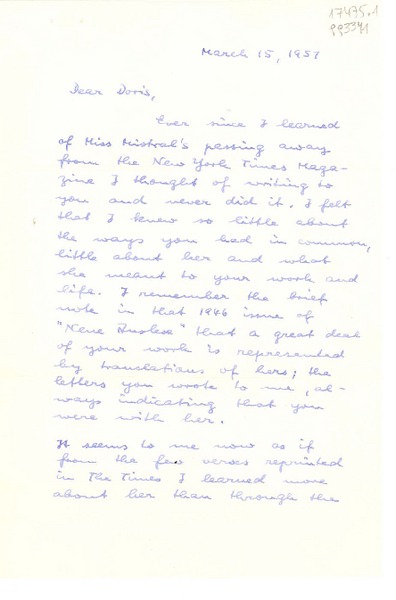 17475.1
993341
March 15, 1957
Dear Doris,
Ever since I learned
of Miss Mistral's passing away
from the New York Times Maga-
zine I thought of writing to
you and never did it. I felt
that I knew so little about
the ways you had in common,
little about her and what
she meant to your work and
life. I remember the brief
note in that 1946 issue of
"Neue Auslese" that a great deal
of your work is represented
by translations of hers; the
letters you wrote to me, al-
ways indicating that you
were with her.
It seems to me now as if
from the few verses reprinted
in The Times I learned more
about her than through the